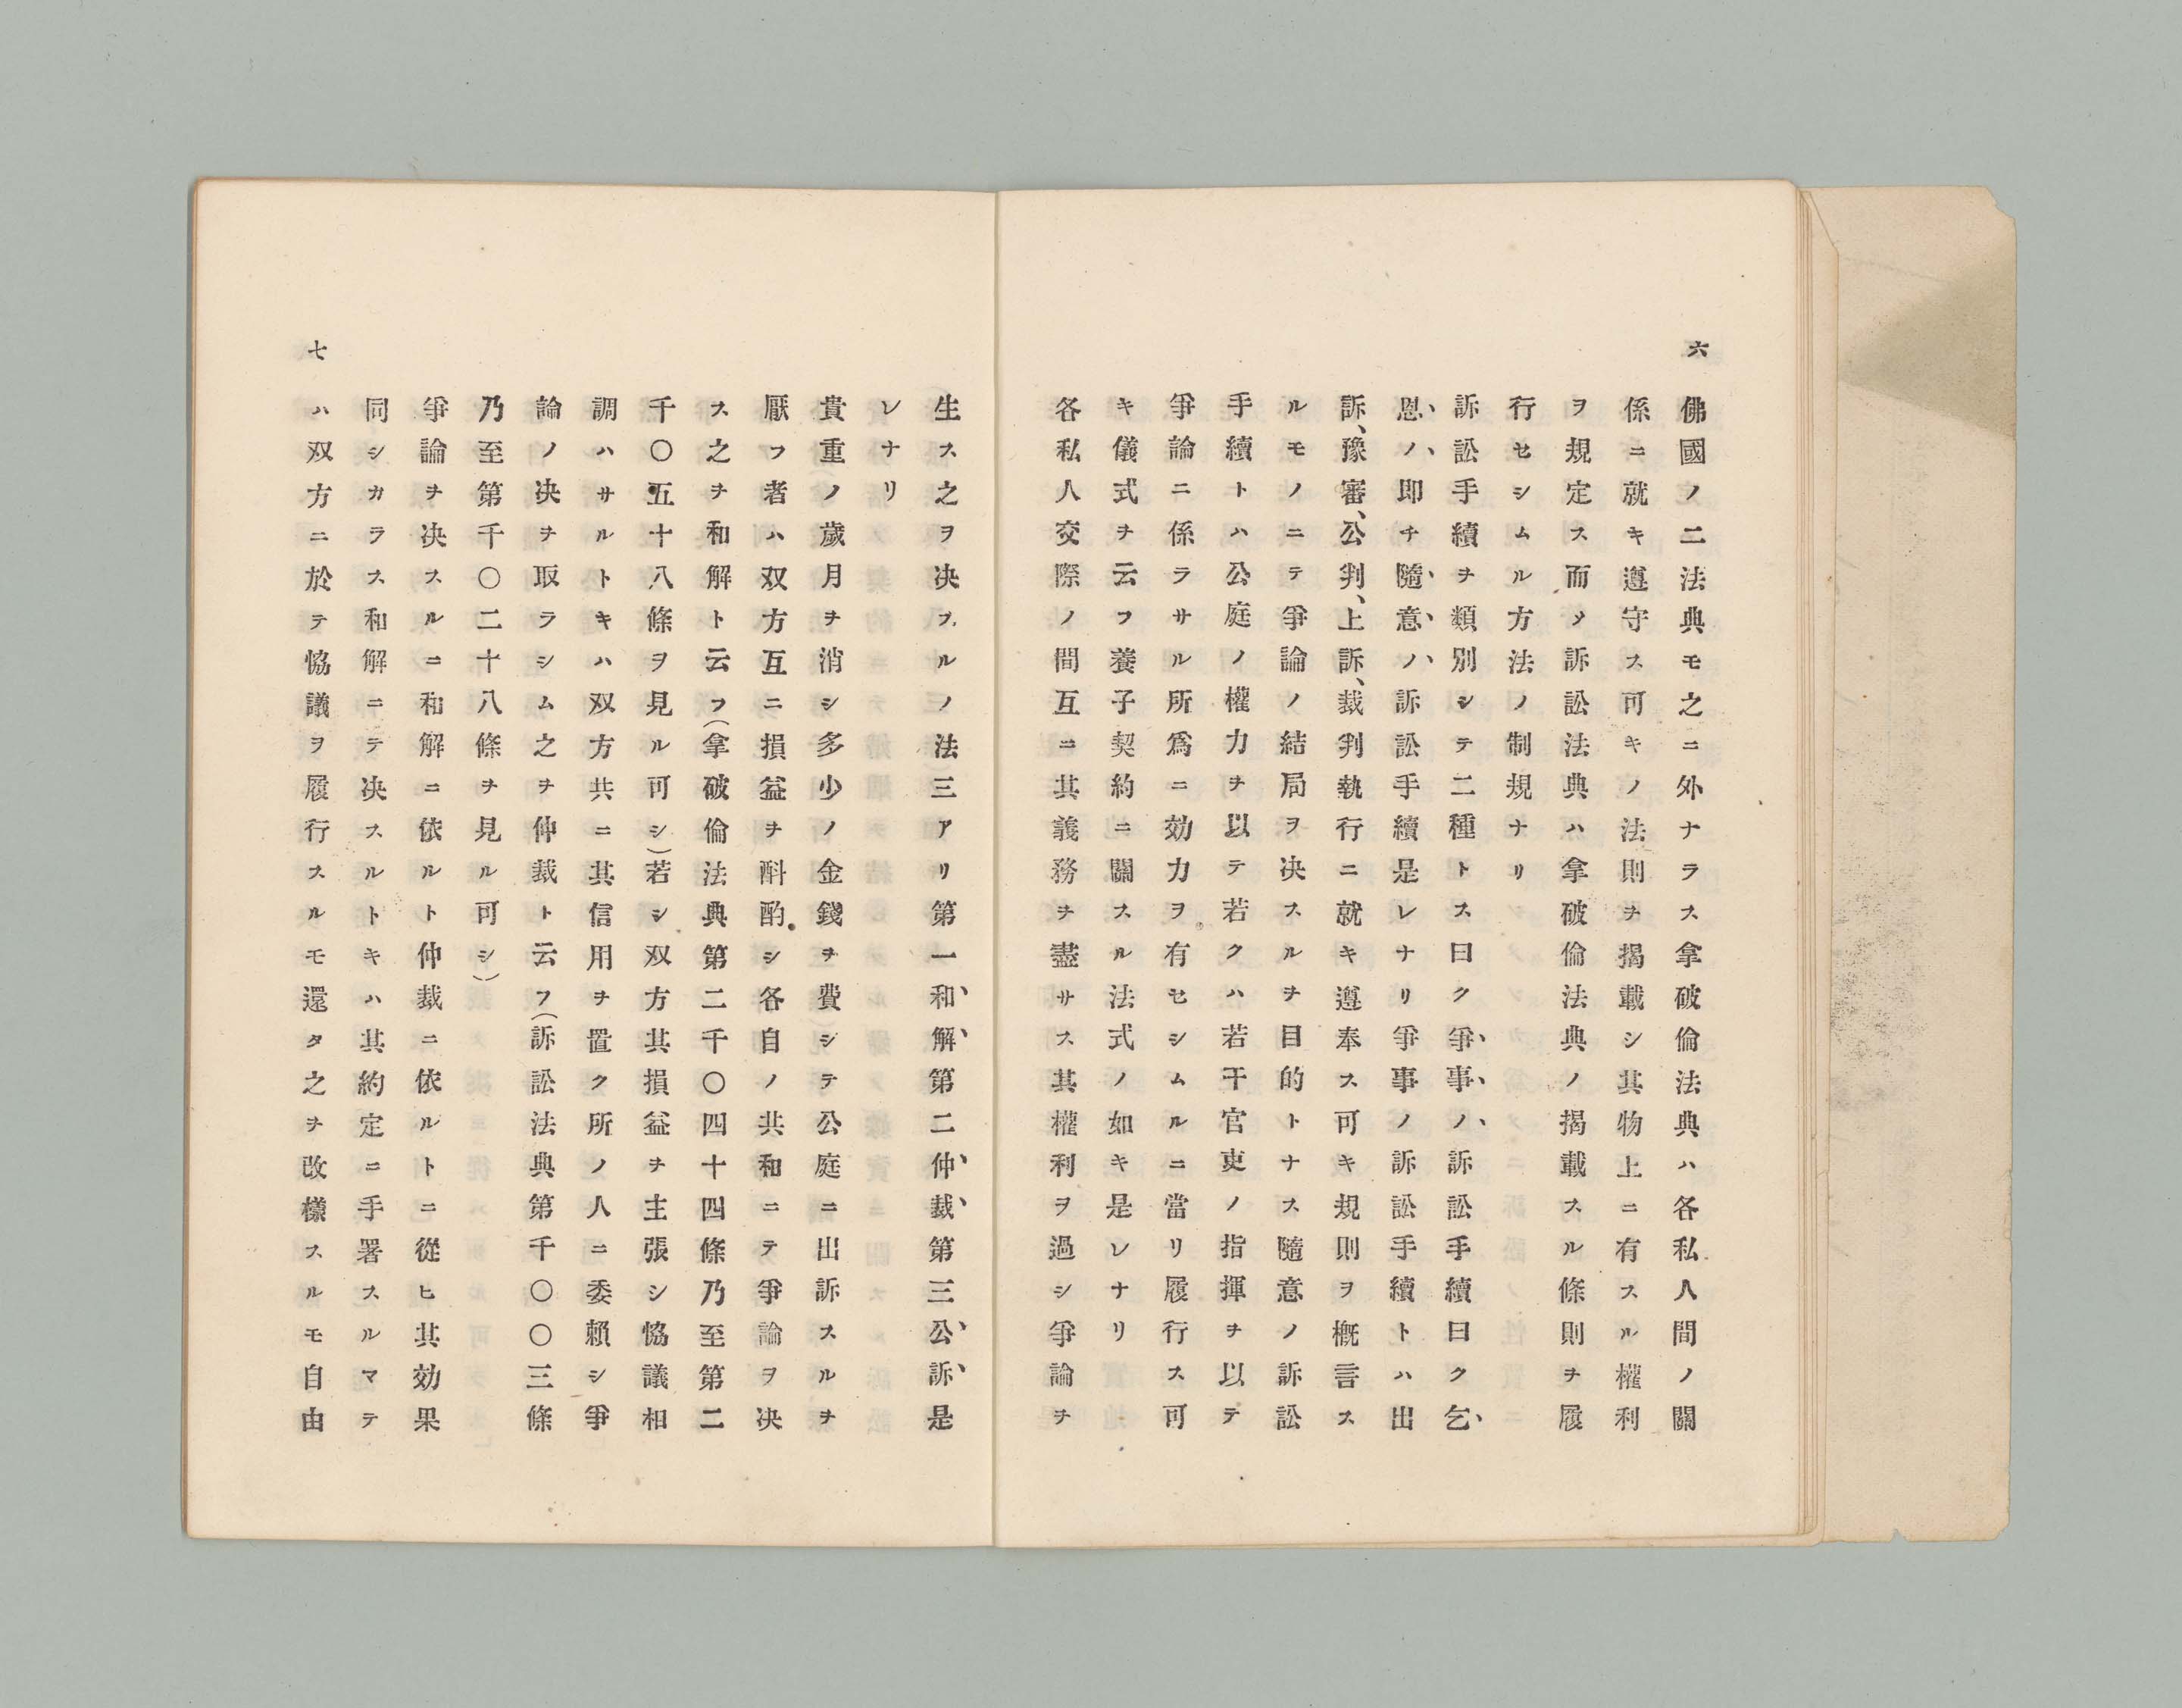 六
佛國ノ二法典モ之ニ外ナラス拿破倫法典ハ各私人間ノ關
係ニ就キ遵守ス可キノ法則ヲ揭載シ其物上ニ有スル權利
ヲ規定ス而メ訴訟法典ハ拿破倫法典ノ揭載スル條則ヲ履
行セシムル方法ノ制規ナリ
訴訟手續ヲ類別シテ二種トス曰ク爭、事、ノ、訴訟手續曰ク乞、
恩、ノ、即チ隨、意、ノ、訴訟手續是レナリ爭事ノ訴訟手續トハ出
訴、豫審、公判、上訴、裁判執行ニ就キ遵奉ス可キ規則ヲ槪言ス
ルモノニテ爭論ノ結局ヲ决スルヲ目的トナス隨意ノ訴訟
手續トハ公庭ノ權力ヲ以テ若クハ若干官吏ノ指揮ヲ以テ
爭論ニ係ラサル所爲ニ効力ヲ有セシムルニ當リ履行ス可
キ儀式ヲ云フ養子契約ニ關スル法式ノ如キ是レナリ
各私人交際ノ間互ニ其義務ヲ盡サス其權利ヲ過シ爭論ヲ
生ス之ヲ决スルノ法三アリ第一和、解、第二仲、裁、第三公、訴、是
レナリ
貴重ノ歲月ヲ消シ多少ノ金錢ヲ費シテ公庭ニ出訴スルヲ
厭フ者ハ双方互ニ損益ヲ酙酌シ各自ノ共和ニテ爭論ヲ决
ス之ヲ和解ト云フ(拿破倫法典第二千〇四十四條乃至第二
千〇五十八條ヲ見ル可シ)若シ双方其損益ヲ主張シ恊議相
調ハサルトキハ双方共ニ其信用ヲ置ク所ノ人ニ委賴シ爭
論ノ决ヲ取ラシム之ヲ仲裁ト云フ(訴訟法典第千〇〇三條
乃至第千〇二十八條ヲ見ル可シ)
爭論ヲ决スルニ和解ニ依ルト仲裁ニ依ルトニ從ヒ其効果
同シカラス和解ニテ决スルトキハ其約定ニ手署スルマテ
ハ双方ニ於テ恊議ヲ履行スルモ還タ之ヲ改樣スルモ自由
七